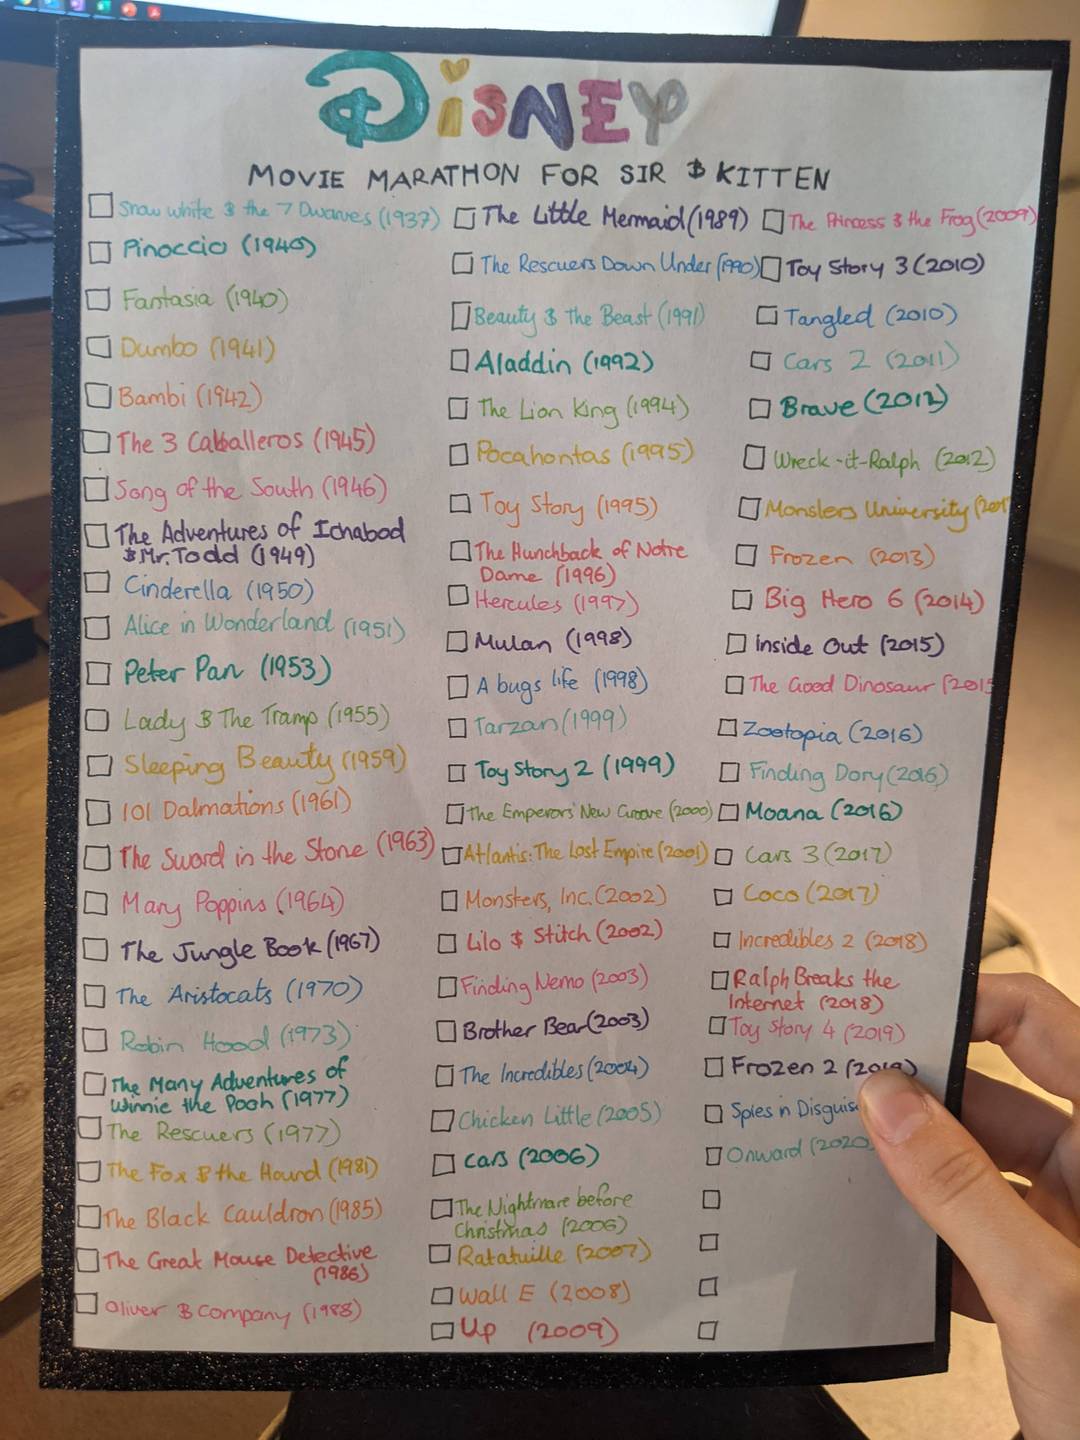 DisNEY
MOVIE MARATHON FOR SIR & KITTEN
Snow white & the 7 Dwarves (1937)
Pinoccio (1940)
Fantasia (1940)
Dumbo (1941)
Bambi (1942)
The 3 Caballeros (1945)
Song of the South (1946)
The Adventures of Ichabod
& Mr. Todd (1949)
Cinderella (1950)
Alice in Wonderland (1951)
Peter Pan (1953)
Lady & The Tramp (1955)
Sleeping Beauty (1959)
101 Dalmations (1961)
The Sword in the Stone (1963)
Mary Poppins (1964)
The Jungle Book (1967)
The Aristocats (1970)
Robin Hood (1973)
The Many Adventures of
Winnie the Pooh (1977)
The Rescuers (1977)
The Fox & the Hound (1981)
The Black Cauldron (1985)
The Great Mouse Detective
(1986)
Oliver & Company (1988)
The Little Mermaid (1989)
The Rescuers Down Under (1990)
Beauty & the Beast (1991)
Aladdin (1992)
The Lion King (1994)
Pocahontas (1995)
Toy Story (1995)
The Hunchback of Notre
Dame (1996)
Hercules (1997)
Mulan (1998)
A bugs life (1998)
Tarzan (1999)
Toy Story 2 (1999)
The Emperors' New Groove (2000)
Atlantis: The Lost Empire (2001)
Monsters, Inc. (2002)
Lilo & Stitch (2002)
Finding Nemo (2003)
Brother Bear (2003)
The Incredibles (2004)
Chicken Little (2005)
Cars (2006)
The Nightmare before
Christmas (2006)
Ratatuille (2007)
Wall E (2008)
Up (2009)
The Princess & the Frog (2009)
Toy Story 3 (2010)
Tangled (2010)
Cars 2 (2011)
Brave (2012)
Wreck-it-Ralph (2012)
Monsters University (201
Frozen (2013)
Big Hero 6 (2014)
Inside Out (2015)
The Good Dinosaur (2015
Zootopia (2016)
Finding Dory (2016)
Moana (2016)
Cars 3 (2017)
Coco (2017)
Incredibles 2 (2018)
Ralph Breaks the
Internet (2018)
Toy Story 4 (2019)
Frozen 2 (2019)
Spies n Disguis
Onward (2020)